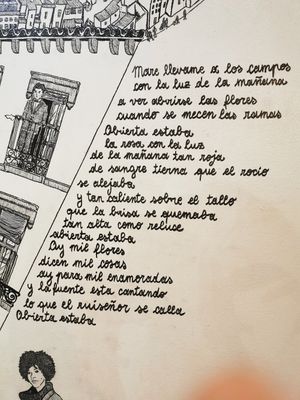 Mare llevame a los campos
con la luz de la mañana
a ver abrirse las flores
cuando se mecen las ramas
Abierta estaba
la rosa con la luz
de la mañana tan roja
de sangre tierna que el rocío
se alejaba
y tan caliente sobre el tallo
que la brisa se quemaba
tan alta como reluce
abierta estaba
Ay mil flores
dicen mil cosas
ay para mil enamoradas
y la fuente esta cantando
lo que el ruiseñor se calla
Abierta estaba